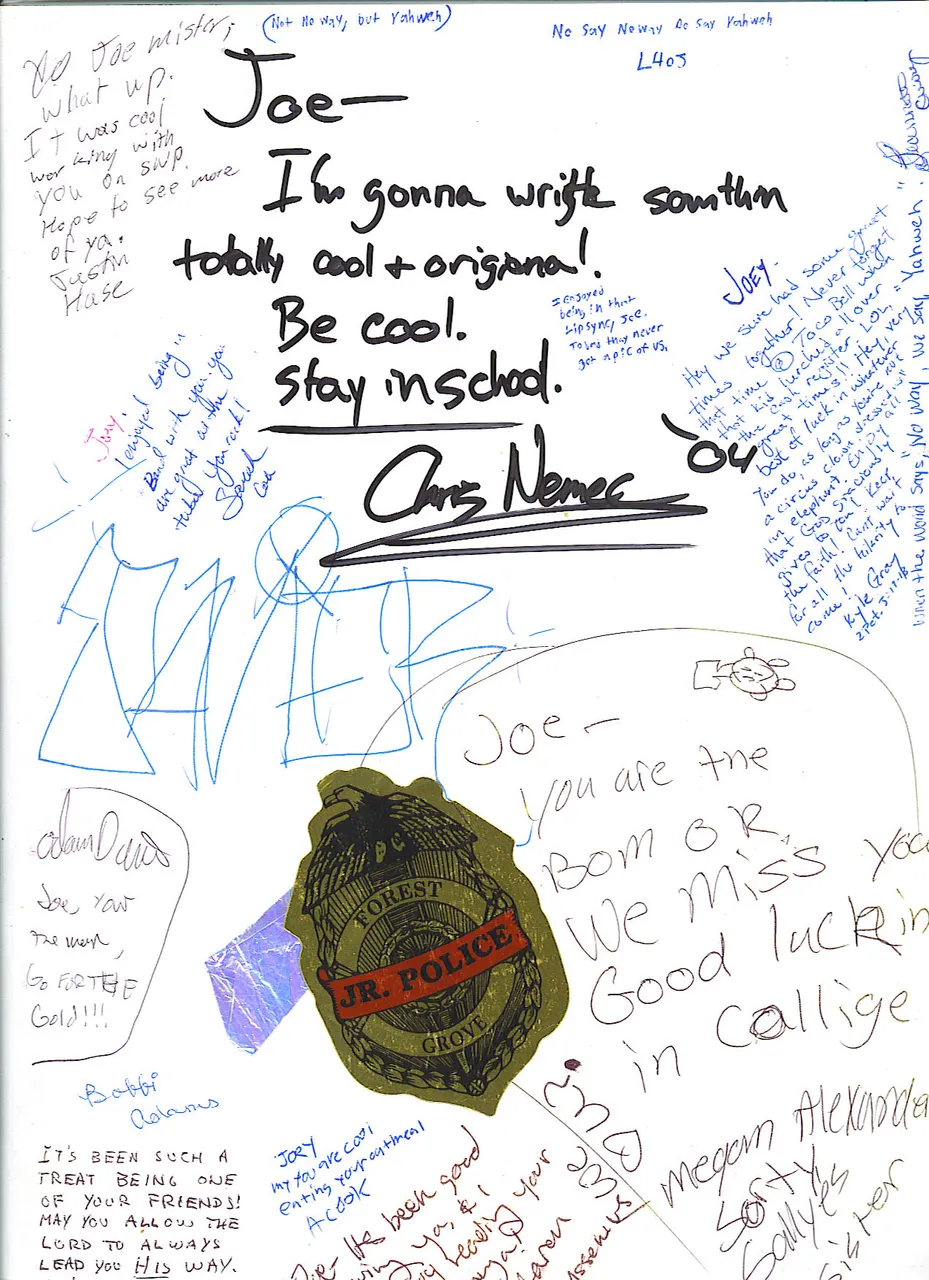 (Not No way, but Yahweh)
No Say Noway Do Say Yahweh
L4OJ
Yo Joe mister,
what up.
It was cool
working with
you on swp.
Hope to see more
of ya.
Justin
Hase
Joe—
I'm gonna write somthin
totally cool + origional.
Be cool.
stay in school.
Chris Nemec
'04
I enjoyed
being in that
Lipsync, Joe.
To bad they never
got a pic of us.
JOEY-
Hey we sure had some great
times together! Never forget
that time @ Taco Bell when
that kid lurched all over
the cash register LOL,
great times!! Hey,
best of luck in whatever
You do, as long as you're not
a circus clown dressed
in elephant Enjoy all
that God graciously will
gives to you! Keep
the faith! Can't wait
for all the hilarity to
come!
Kyle Gray
2 Pet. 3:17-18
When the world says "No way, we say, "Yahweh"
Joey
I enjoyed being in
Band with you. you
are great with the
tuba! You rock!
Sarah
Joe—
you are the
Bom O R,
We miss you
Good luck in
in Collige
Megan Alexander
Sorty
Sallyes
Sister
FOREST
JR. POLICE
GROVE
Adam Davis
Joe Your
The man,
Go FOR THE
Gold!!!
Bobbi
Adams
IT'S BEEN SUCH A
TREAT BEING ONE
OF YOUR FRIENDS!
MAY YOU ALLOW THE
LORD TO ALWAYS
LEAD YOU HIS WAY.
JOEY
my you are cool
enting your oatmeal
A COOK
Its been good
ya, &
leading your
Karen